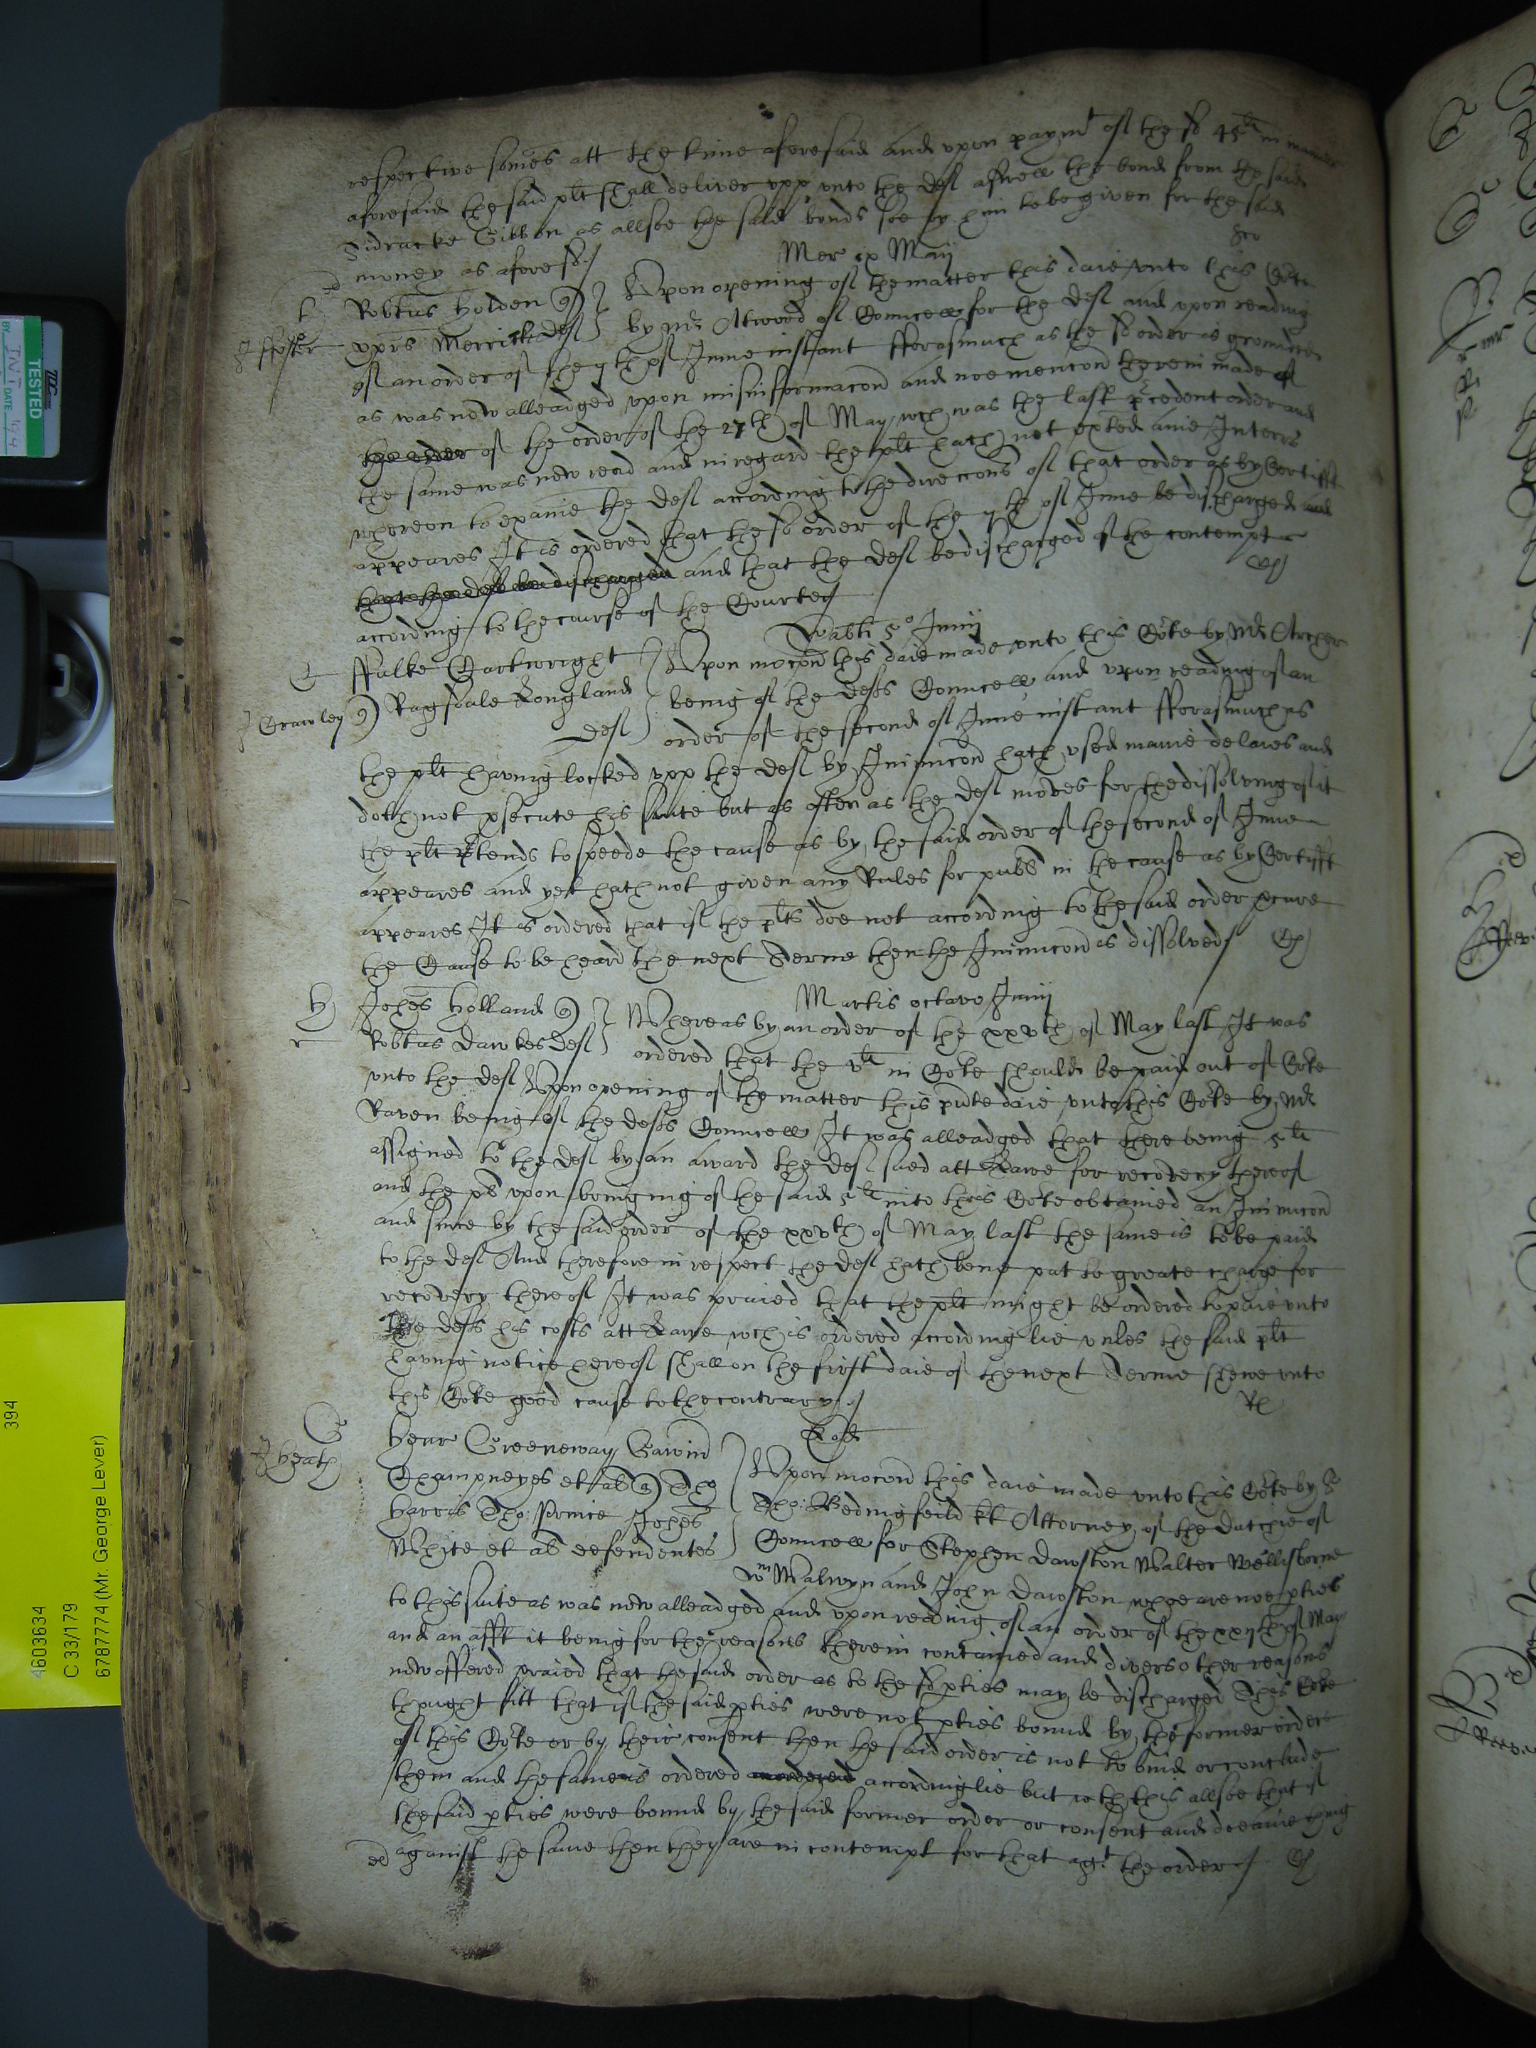 respective som̃es att the time aforesaid and upon paymt of the sd 45li in manner
aforesaid the said plt shall deliver upp unto the deft aswell the bond from the said
Sidracke Gibbon as allsoe the said bonds soe by him to be given for the said
money as aforesd
Mer ix
H Robtus Holden Upon opening of the matter this daie unto this Cort
J ffoster uprs Merrick deft by Mr Atwood of Councell for the deft and upon reading
of an order of the 7th of June instant fforasmuch as the sd order is grounded
as was now alleadged upon misinformacon and noe mencon therein made of
the order of the order of the 27th of May wch was the last prcedent order and
the same was now read and in regard the plt hath not exted anie Interrs
whereon to examine the deft according to the direccons of that order as by Certifft
appeares It is ordered that the sd order of the 7th of June be discharged and
that the deft bee discharged and that the deft be discharged of the contempt
according to the course of the Courte
Sabti 5o Junij
C ffulke Cartwright Upon mocon this daie made unto this Corte by Mr Archer
J Crawley Ragsdale Longland being of the defts Councell and upon reading of an
deft order of the second of June instant fforasmuch as
the plt having locked upp the deft by Iniunccon hath used manie delaies and
doth not psecute his suite but as often as the deft moves for the dissolving of it
the plt prtends to speede the cause as by the said order of the second of June
appeares and yet hath not given any Rules for publ in the cause as by Certifft
appeares It is ordered that if the plts doe not according to the said order pcure
the Cause to be heard the next Terme then the Iniunccon is dissolved
Martis octavo Junij
H Johes Holland Whereas by an order of the xxvth of May last It was
r Robtus Dawkes deft ordered that the vli in Corte should be paid out of Corte
unto the deft Upon opening of the matter this pnte daie unto this Corte by Mr
Raven being of the defts Councell It was alleadged that there being 5li
assigned to the deft by an award the deft sued att Lawe for recovery thereof
and the plt upon bringing of the said 5li into this Corte obtained an Iniunccon
and since by the said order of the xxvth of May last the same is to be paid
to the deft And therefore in respect the deft hath bene put to greate charge for
recovery thereof It was praied that the plt might be ordered to paie unto
the defts his costs att Lawe wch is ordered accordinglie unles the said plt
having notice hereof shall on the first daie of the next Terme shewe unto
this Corte good cause to the contrary
Eod
G Henr Greeneway Gawin Upon mocon this daie made unto this Corte by Sr
J Heath Champneyes et al Tho Tho: Bedingfeild kt Attorney of the Dutchie of
Harris Tho: Prince Johes Councell for Stephen Dawston Walter Wellisborne
White et al defendentes Wm Malwyn and John Dawston whoe are noe pties
to this suite as was now alleadged and upon reading of an order of the xxvth of May
and an afft it being for the reasons therein contained and divers other reasons
now offered praied that the said order as to the sd pties may be discharged This Corte
thought fitt that if the said pties were not pties bound by the former order
of this Corte or by their consent then the said order is not to bind or conclude
them and the same is ordered accordinglie but wth this allsoe that if
the said pties were bound by the said former order or consent and doe anie thing
against the same then they are in contempt for that agt the order
TESTED
INT
DATE
394
4603634
C 33/179
6787774 (Mr. George Lever)